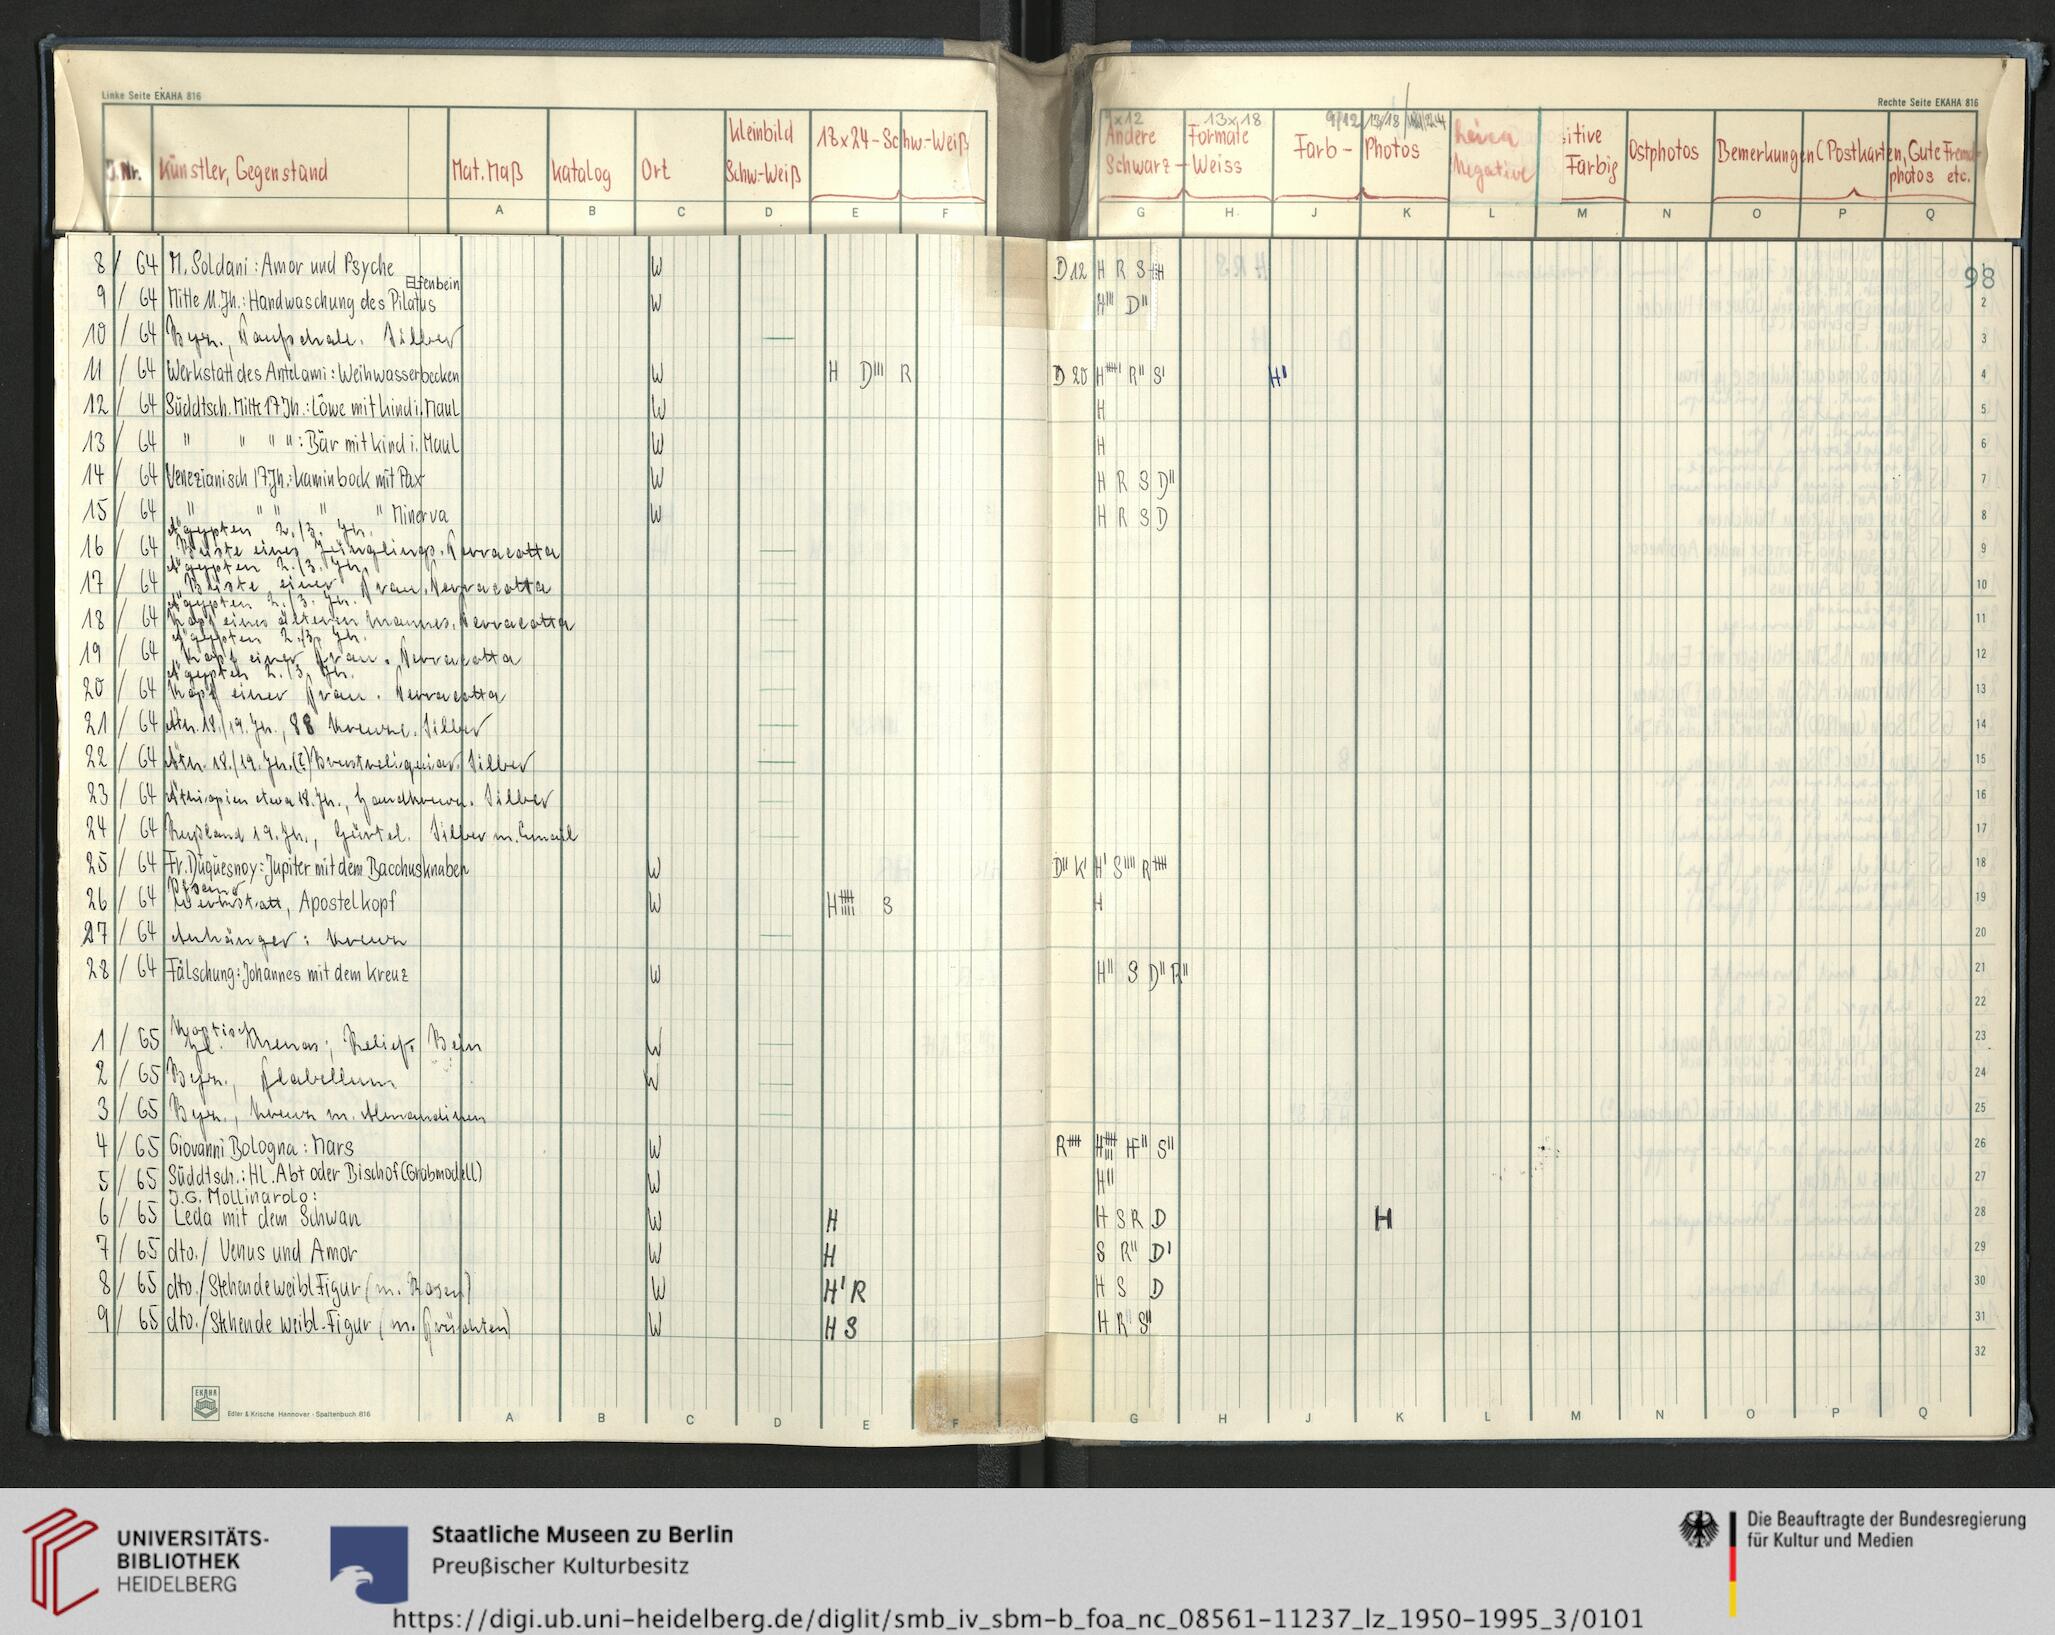 Linke Seite EKAHA 816
Rechte Seite EKAHA 816
J.Nr. Künstler, Gegenstand Mat. Maß Katalog Ort Kleinbild Schw.-Weiß 18x24-Schw.-Weiß
9x12 13x18 9/12 13/18
Andere Formate Schwarz-Weiss Farb-Photos Leica Negative itive Farbig Ostphotos Bemerkungen (Postkarten, Gute Fremdphotos etc.
A B C D E F G H J K L M N O P Q
98
8/ 64 M. Soldani: Amor und Psyche W D12 H R S 1
9/ 64 Mitte 11. Jh.: Handwaschung des Pilatus Elfenbein W H''' D'' 2
10/ 64 Byz., Taufschale. Silber — 3
11/ 64 Werkstatt des Antelami: Weihwasserbecken W H D''' R D 20 H R'' S' H' 4
12/ 64 Süddtsch. Mitte 17. Jh.: Löwe mit Kind i. Maul W H 5
13/ 64 " " " ": Bär mit Kind i. Maul W H 6
14/ 64 Venezianisch 17. Jh.: Kaminbock mit Pax W H R S D'' 7
15/ 64 " " " " " Minerva W H R S D 8
Ägypten 2./3. Jh.
16/ 64 Büste eines Jünglings. Terracotta — 9
Ägypten 2./3. Jh.
17/ 64 Büste einer Frau. Terracotta — 10
Ägypten 2./3. Jh.
18/ 64 Kopf eines älteren Mannes. Terracotta — 11
Ägypten 2./3. Jh.
19/ 64 Kopf einer Frau. Terracotta — 12
Ägypten 2./3. Jh.
20/ 64 Kopf einer Frau. Terracotta — 13
21/ 64 Ätn. 18./19. Jh., 88 Kreuze. Silber — 14
22/ 64 Ätn. 18./19. Jh. (?) Brustreliquiar. Silber — 15
23/ 64 Äthiopien etwa 18. Jh., Handkreuz. Silber — 16
24/ 64 Rußland 19. Jh., Gürtel. Silber m. Email — 17
25/ 64 Fr. Duquesnoy: Jupiter mit dem Bacchusknaben W D'' K' H' S'''' R 18
26/ 64 Werkstatt, Apostelkopf W H S H 19
27/ 64 Anhänger: Kreuz — 20
28/ 64 Fälschung: Johannes mit dem Kreuz W H'' S D'' R'' 21
22
Koptisch
1/ 65 Hl. Menas, Relief, Bein W — 23
2/ 65 Byz., Flabellum W — 24
3/ 65 Byz., Kreuz m. Almandinen — 25
4/ 65 Giovanni Bologna: Mars W R H H'' S'' 26
5/ 65 Süddtsch.: Hl. Abt oder Bischof (Grabmodell) W H'' 27
J.G. Mollinarolo:
6/ 65 Leda mit dem Schwan W H H S R D K H 28
7/ 65 dto./ Venus und Amor W H S R'' D' 29
8/ 65 dto./ Stehende weibl. Figur (m. Rosen) W H' R H S D 30
9/ 65 dto./ Stehende weibl. Figur (m. Früchten) W H S H R'' S'' 31
32
EKAHA
Edler & Krische Hannover · Spaltenbuch 816
A B C D E F G H J K L M N O P Q
UNIVERSITÄTS-
BIBLIOTHEK
HEIDELBERG
Staatliche Museen zu Berlin
Preußischer Kulturbesitz
Die Beauftragte der Bundesregierung
für Kultur und Medien
https://digi.ub.uni-heidelberg.de/diglit/smb_iv_sbm-b_foa_nc_08561-11237_lz_1950-1995_3/0101